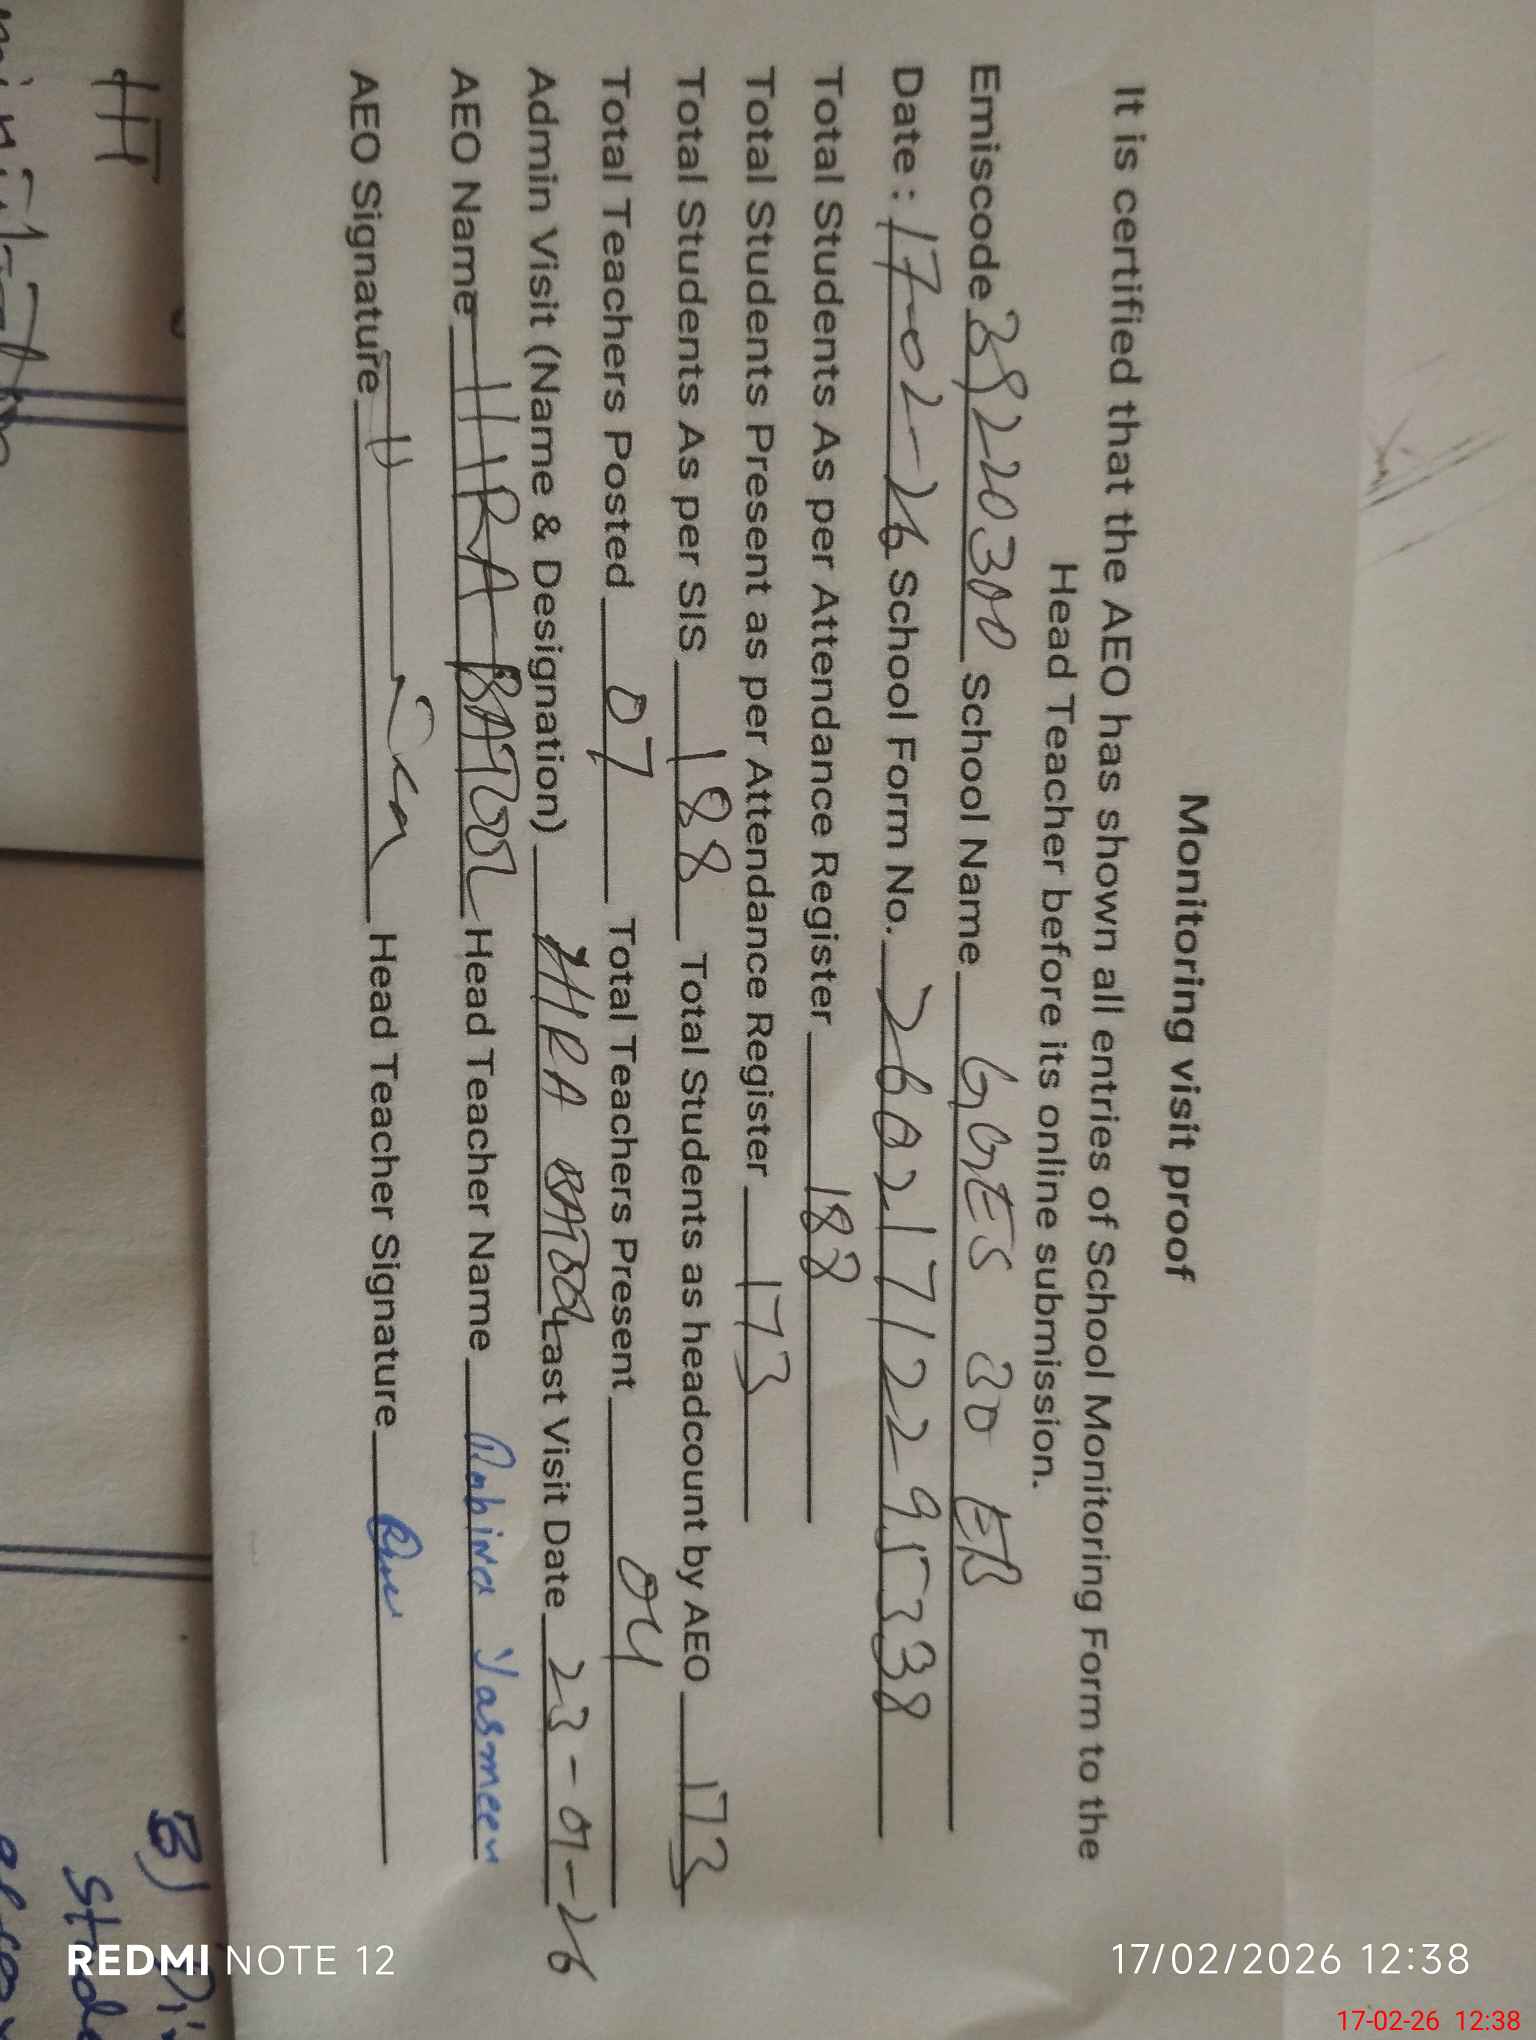 Monitoring visit proof
It is certified that the AEO has shown all entries of School Monitoring Form to the
Head Teacher before its online submission.
Emiscode 39220300 School Name GGES 30 EB
Date : 17-02-26 School Form No. 2602171229538
Total Students As per Attendance Register 188
Total Students Present as per Attendance Register 173
Total Students As per SIS 188 Total Students as headcount by AEO 173
Total Teachers Posted 07 Total Teachers Present 04
Admin Visit (Name & Designation) HIRA BATOOL Last Visit Date 23-01-26
AEO Name HIRA BATOOL Head Teacher Name Rubina Yasmeen
AEO Signature Head Teacher Signature
B)
REDMI NOTE 12
17/02/2026 12:38
17-02-26 12:38